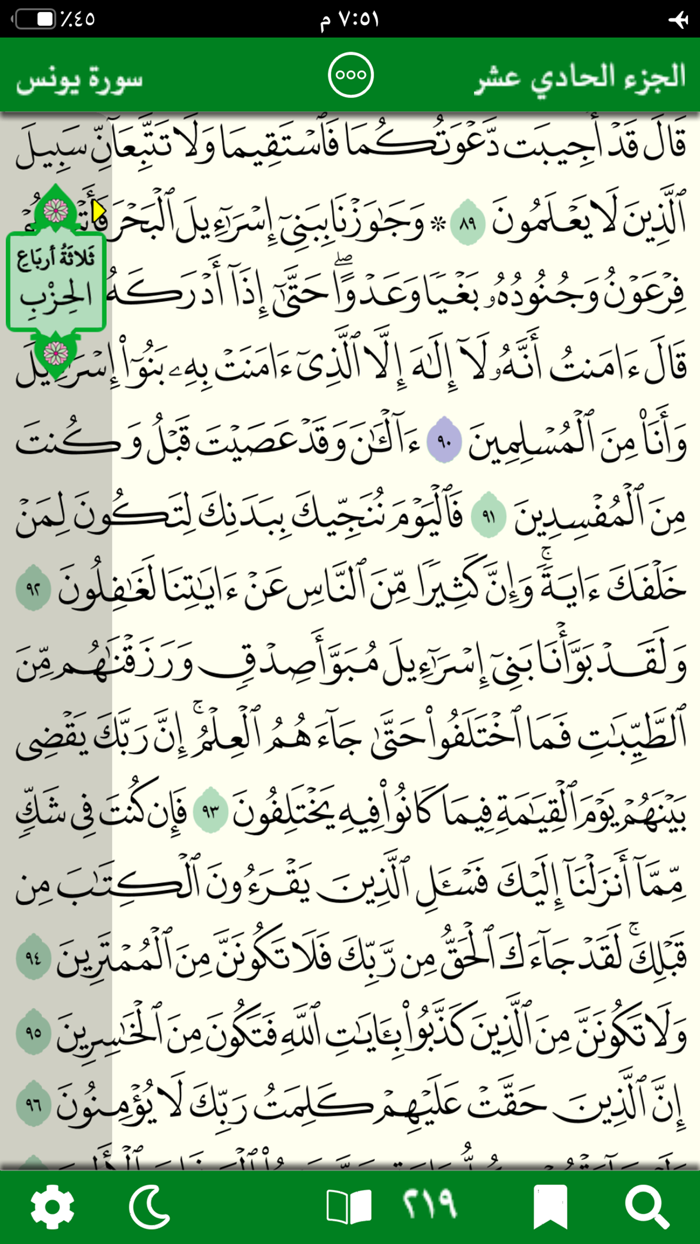 ٪٤٥
٧:٥١ م
الجزء الحادي عشر
سورة يونس
قَالَ قَدۡ أُجِيبَت دَّعۡوَتُكُمَا فَٱسۡتَقِيمَا وَلَا تَتَّبِعَآنِّ سَبِيلَ
ٱلَّذِينَ لَا يَعۡلَمُونَ ٨٩ * وَجَٰوَزۡنَا بِبَنِيٓ إِسۡرَٰٓءِيلَ ٱلۡبَحۡرَ
ثَلَاثَةُ أَربَاع
الحِزْبِ
فِرۡعَوۡنُ وَجُنُودُهُۥ بَغۡيٗا وَعَدۡوًاۖ حَتَّىٰٓ إِذَآ أَدۡرَكَهُ
قَالَ ءَامَنتُ أَنَّهُۥ لَآ إِلَٰهَ إِلَّا ٱلَّذِيٓ ءَامَنَتۡ بِهِۦ بَنُوٓاْ إِسۡرَٰٓءِيلَ
وَأَنَا۠ مِنَ ٱلۡمُسۡلِمِينَ ٩٠ ءَآلۡـَٰٔنَ وَقَدۡ عَصَيۡتَ قَبۡلُ وَكُنتَ
مِنَ ٱلۡمُفۡسِدِينَ ٩١ فَٱلۡيَوۡمَ نُنَجِّيكَ بِبَدَنِكَ لِتَكُونَ لِمَنۡ
خَلۡفَكَ ءَايَةٗۚ وَإِنَّ كَثِيرٗا مِّنَ ٱلنَّاسِ عَنۡ ءَايَٰتِنَا لَغَٰفِلُونَ ٩٢
وَلَقَدۡ بَوَّأۡنَا بَنِيٓ إِسۡرَٰٓءِيلَ مُبَوَّأَ صِدۡقٖ وَرَزَقۡنَٰهُم مِّنَ
ٱلطَّيِّبَٰتِ فَمَا ٱخۡتَلَفُواْ حَتَّىٰ جَآءَهُمُ ٱلۡعِلۡمُۚ إِنَّ رَبَّكَ يَقۡضِي
بَيۡنَهُمۡ يَوۡمَ ٱلۡقِيَٰمَةِ فِيمَا كَانُواْ فِيهِ يَخۡتَلِفُونَ ٩٣ فَإِن كُنتَ فِي شَكّٖ
مِّمَّآ أَنزَلۡنَآ إِلَيۡكَ فَسۡـَٔلِ ٱلَّذِينَ يَقۡرَءُونَ ٱلۡكِتَٰبَ مِن
قَبۡلِكَۚ لَقَدۡ جَآءَكَ ٱلۡحَقُّ مِن رَّبِّكَ فَلَا تَكُونَنَّ مِنَ ٱلۡمُمۡتَرِينَ ٩٤
وَلَا تَكُونَنَّ مِنَ ٱلَّذِينَ كَذَّبُواْ بِـَٔايَٰتِ ٱللَّهِ فَتَكُونَ مِنَ ٱلۡخَٰسِرِينَ ٩٥
إِنَّ ٱلَّذِينَ حَقَّتۡ عَلَيۡهِمۡ كَلِمَتُ رَبِّكَ لَا يُؤۡمِنُونَ ٩٦
٢١٩